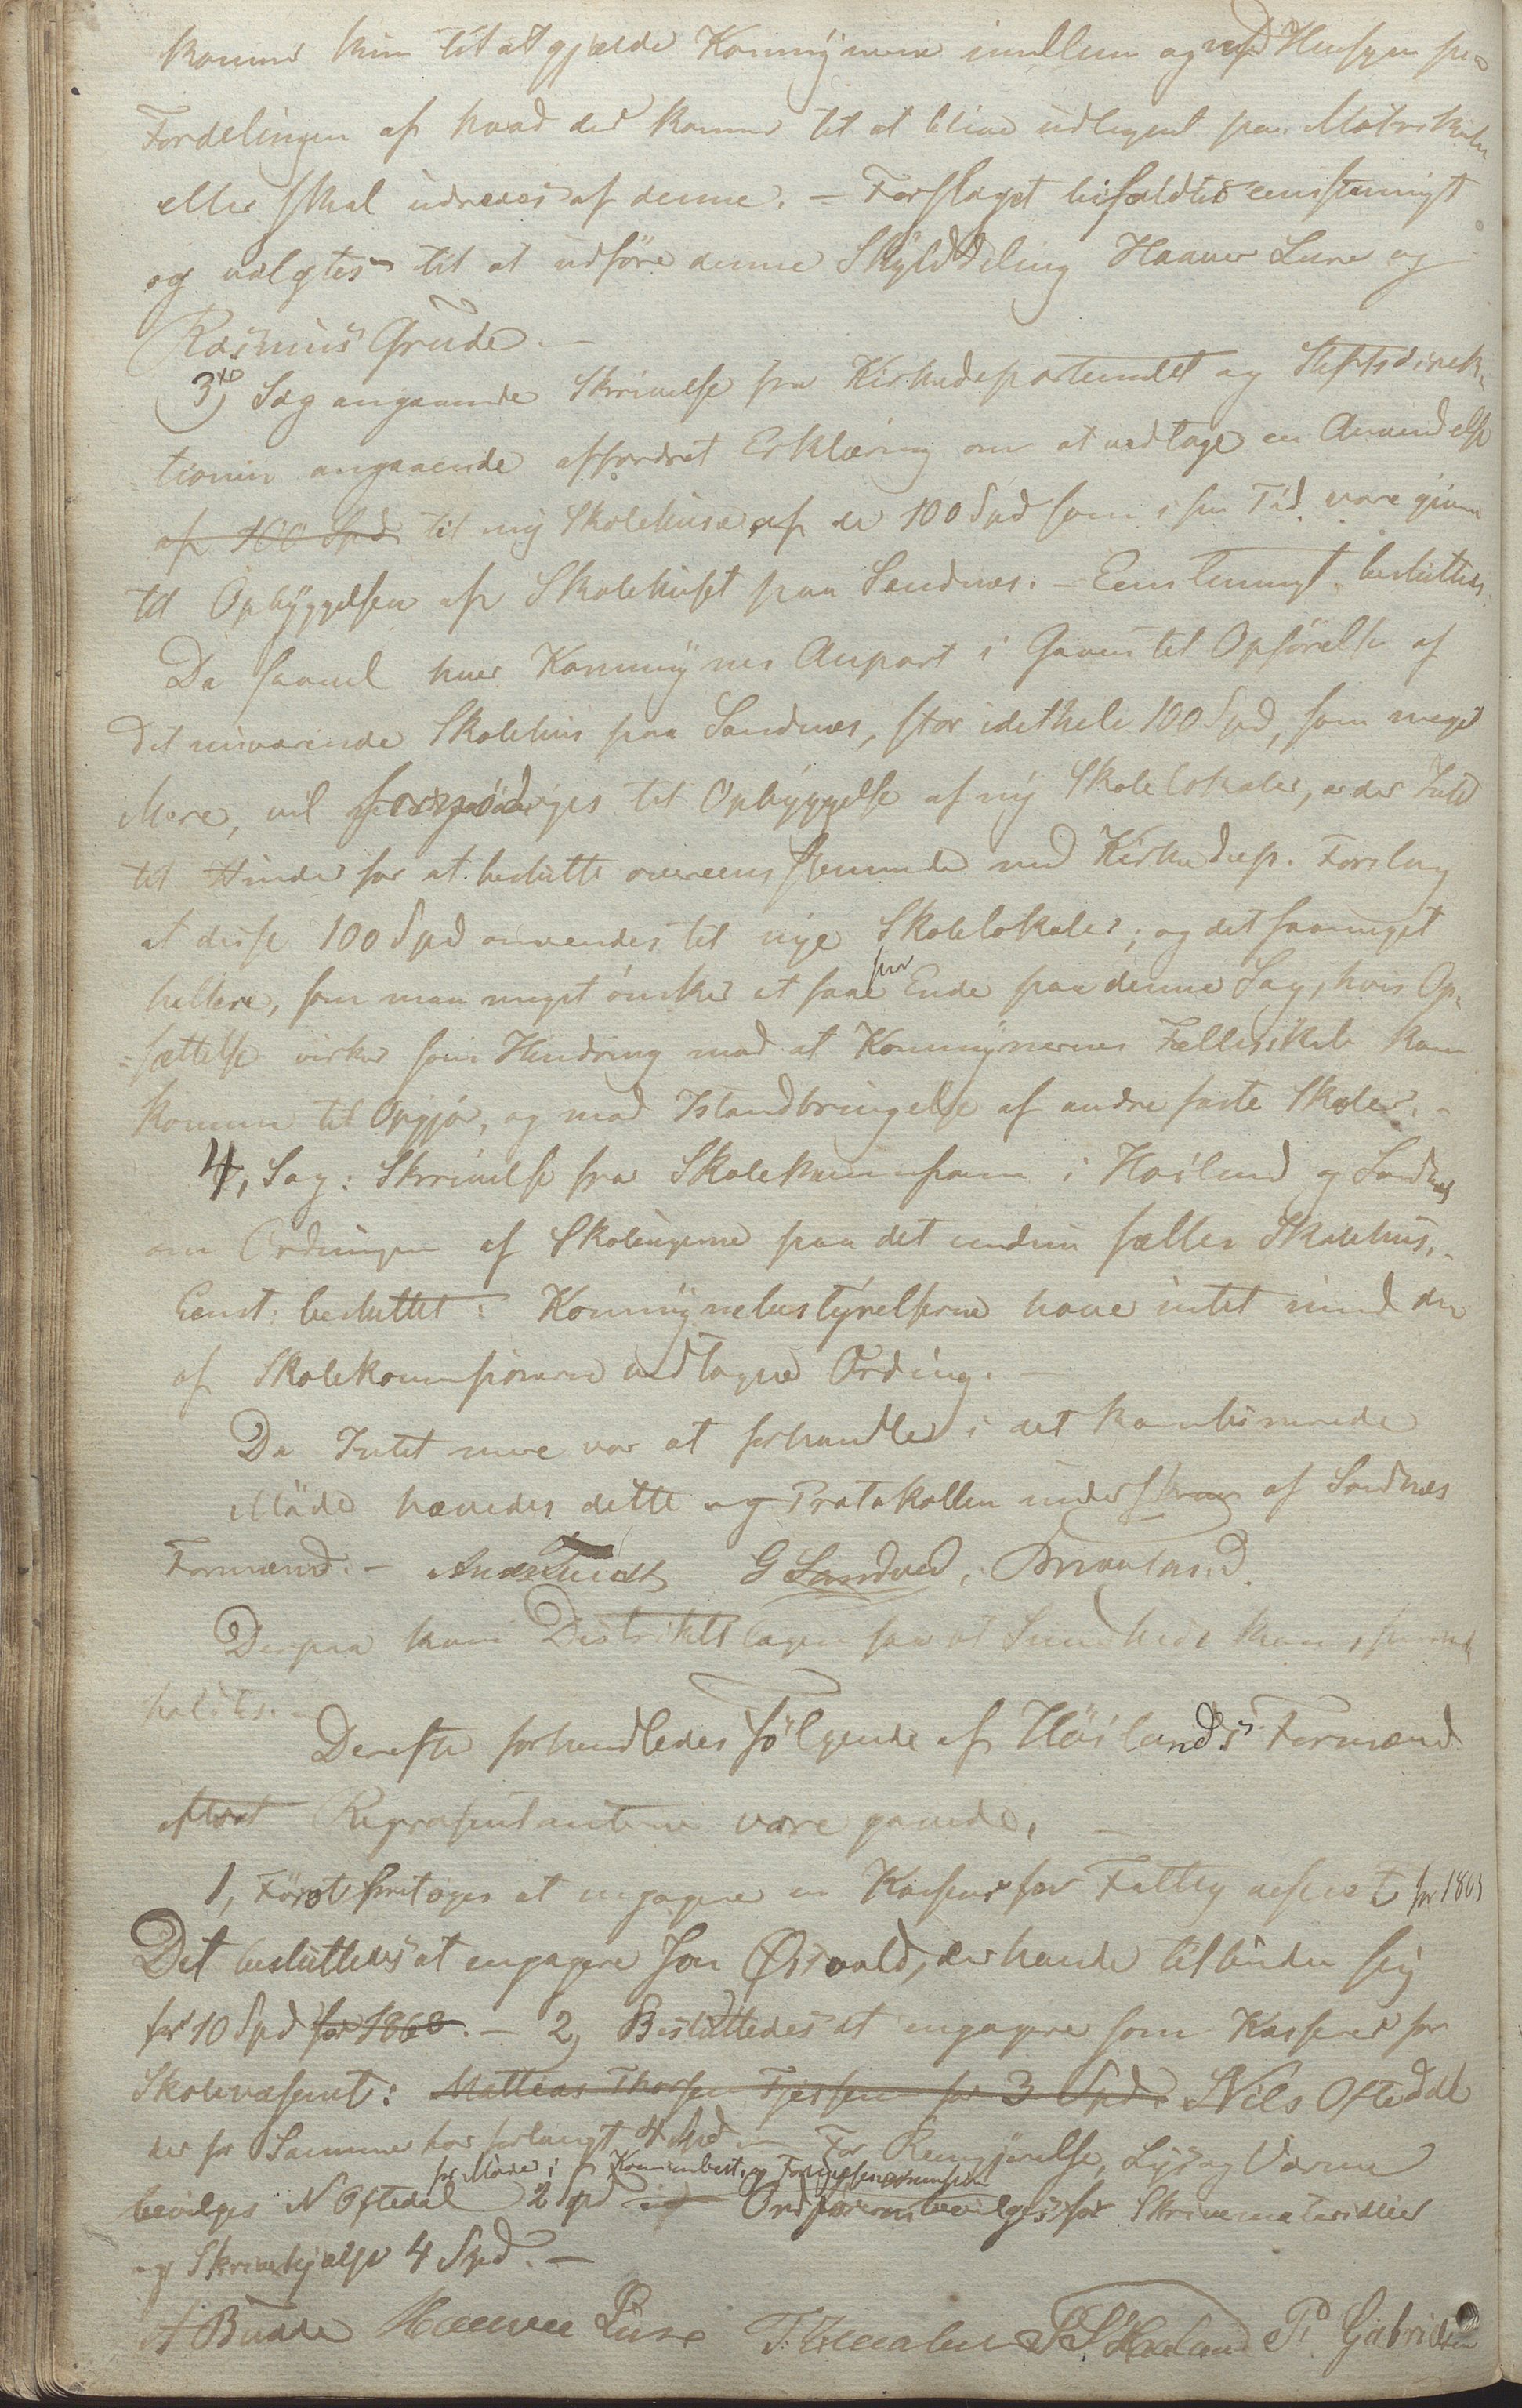 kommer kun til at gjælde Kommunerne imellem og med Hensyn paa
Fordelingen af hvad der kommer til at blive udlignet paa Matrikulen
eller skal udredes af denne. – Forslaget bifaldtes eenstemmigt
og valgtes til at udføre denne Skylddeling Haaver Lura og
Rasmus Grude. –
3) Sag angaaende Skrivelse fra Kirkedepartemdet og Stiftsdirek-
tionen angaaende affordret Erklæring om at vedtage en Anvendelse
af 100 Spd. til ny Skolehuse af de 100 Spd som i sin Tid vare givne
til Opbyggelsen af Skolehuset paa Sandnes. – Eenstemmigt besluttes
Da saavel hver Kommunes Anpart i Gaven til Opførelse af
det nuværende Skolehus paa Sandnes, stor idethele 100 Spd, som meget
Mere, vil fornødiges til Opbyggelse af ny Skolelokaler, er der Intet
til Hinder for at beslutte overeensstemmende med Kirkedep. Forslag
at disse 100 Spd anvendes til nye Skolelokaler; og det saameget
hellere, som man meget ønsker at faae snar Ende paa denne Sag, hvis Op-
sættelse virker som Hindring mod at Kommunernes Fællesskab kan
komme til Opgjør, og mod Istandbringelse af andre faste Skoler. –
4, Sag: Skrivelse fra Skolekommissionen i Høiland og Sandnes
om Ordningen af Skolingerne paa det endnu fælles Skolehus. –
Eenst. besluttet: Kommunebestyrelserne have intet imod den
af Skolekommissionerne vedtagne Ordning. –
Da Intet mere var at forhandle i det kombinerede
Møde hævedes dette og Protokollen underskrev af Sandnes
Formænd. – G Sandved,
Derpaa kom Distriktslægen saa at Sundheds kom,
holdtes. –
Derefter forhandledes følgende af Høilands Formænd
efterat Repræsentanterne vare gaaede. –
1, Først foretoges at engagere en Kasserer for Fattigvæsenet for 1869
Det besluttedes at engagere Jon Øisvold, der havde tilbudet sig
for 10 Spd for 1868. – 2, Besluttedes at engagere som Kasserer for
Skolevæsenet: Mathias Thorsen Tjessem for 3 Spd. Nils Oftedal
der for Samme har forlangt 4 Spd – For Rengjørelse, Lys og Varme
for Møde i Kommunbest. og Forligelseskommission
bevilges N Oftedal 2 Spd og Ordføreren bevilges for Skrivematerialier
og Skrivehjælp 4 Spd. –
A Budde Haaver Lura P. Gabrielsen